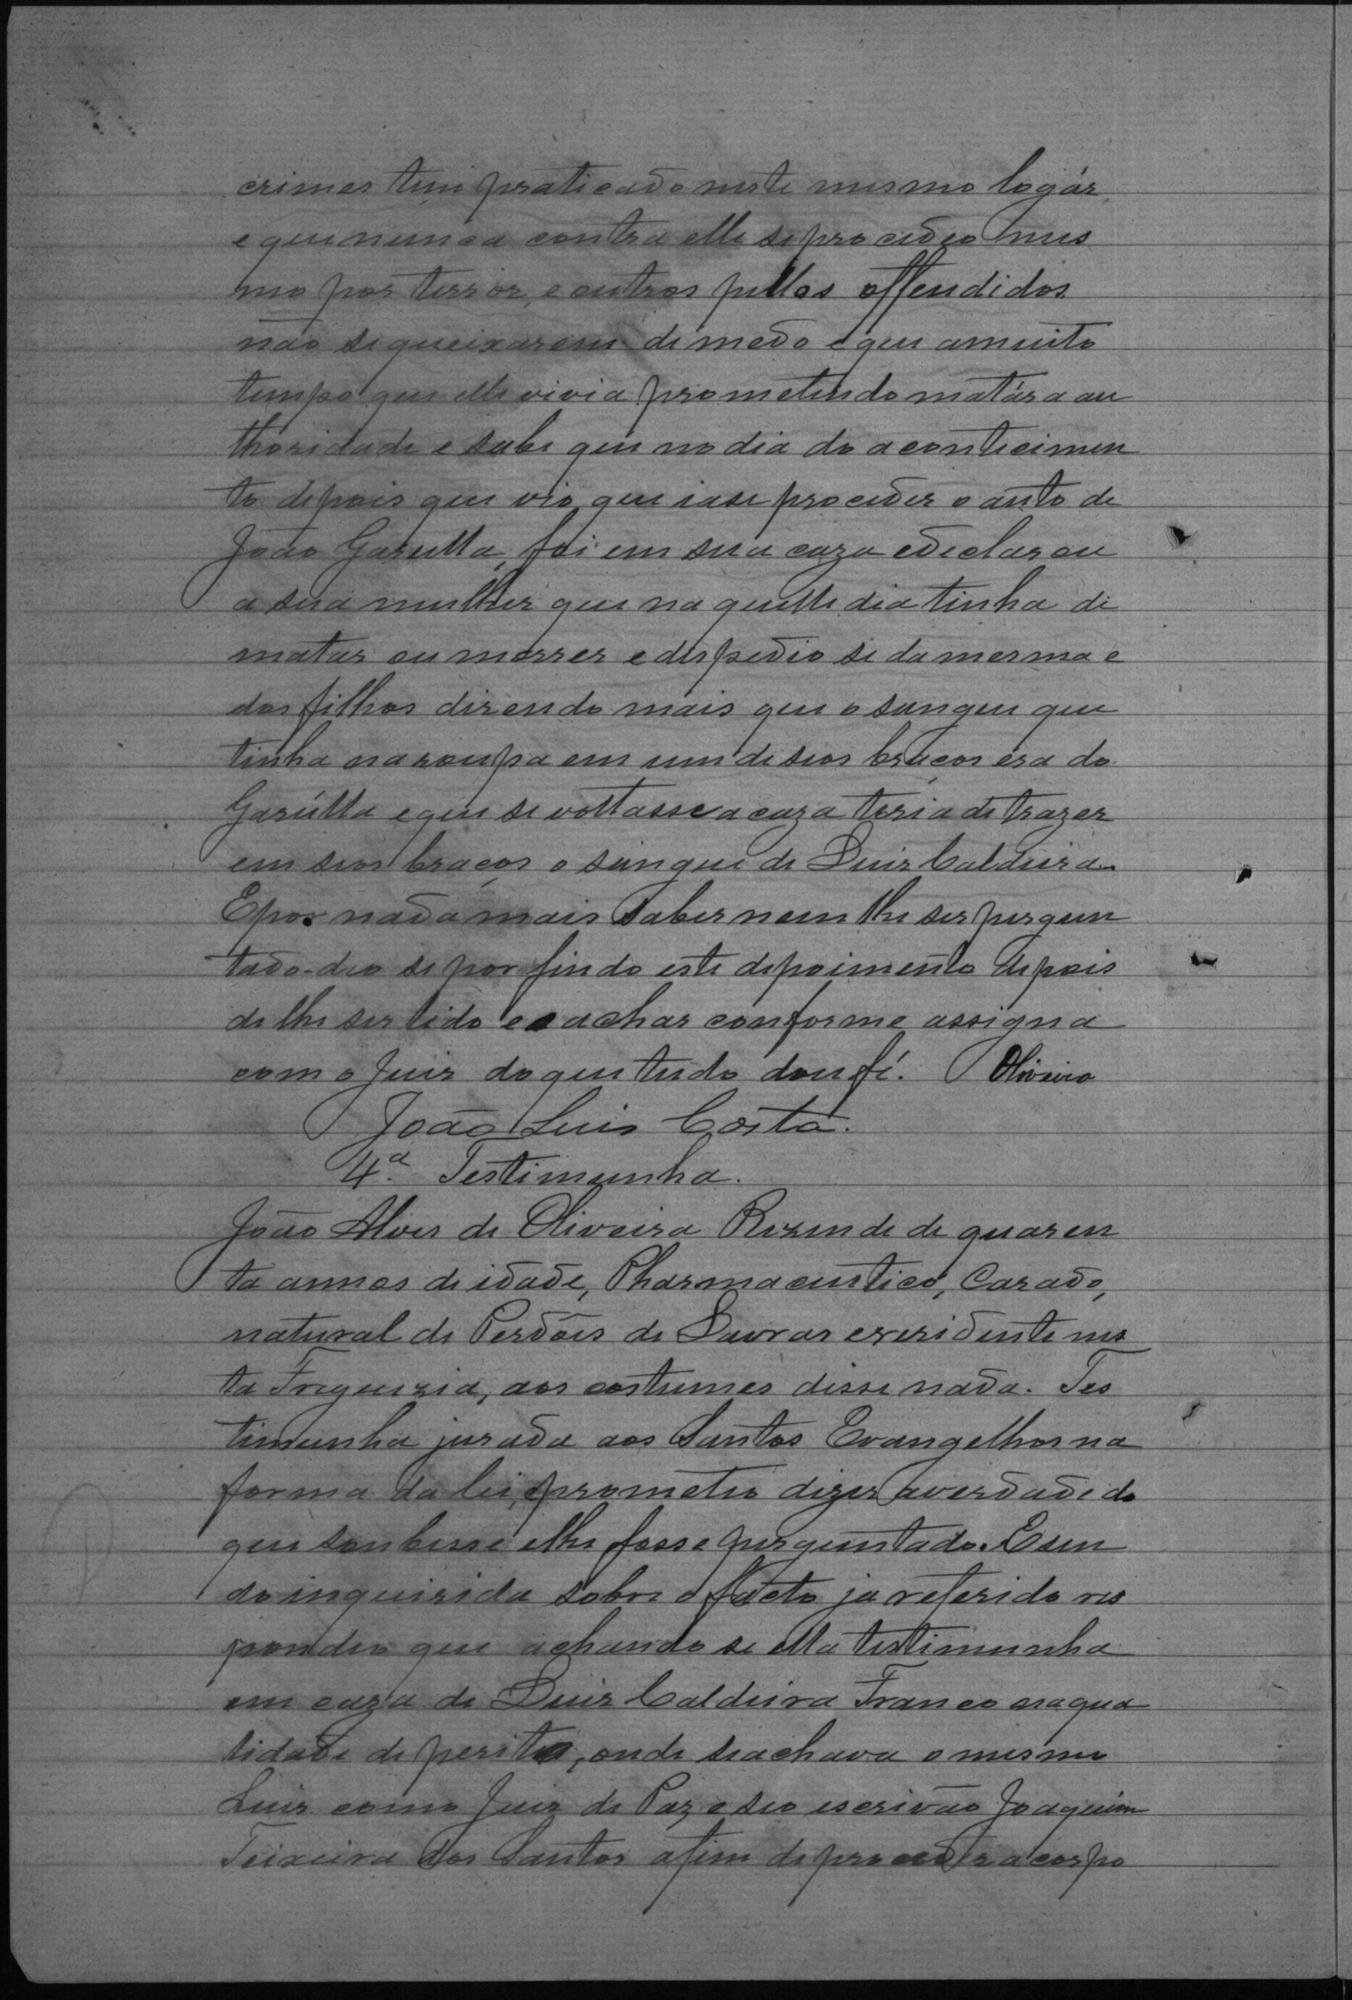 crimes tem praticado neste mesmo logár
e que nunca contra elle se procedeo mes
mo por terrôr, e outros pellos offendidos
não se queixarem de medo e que amuito
tempo que elle vivia prometendo matár a au
thoridade e sabe que no dia do acontecimen
to depois que vio que iase proceder o auto de
João Garulla, foi em sua caza e declarou
a sua mulher que naquelle dia tinha de
matar ou morrer e despedio se da mesma e
dos filhos dizendo mais que o sangue que
tinha na roupa em um de seos braços era do
Garúlla e que se voltasse a caza teria de trazer
em seos braços o sangue de Luiz Caldeira.
E por nada mais saber nem lhe ser pergun
tado deo se por findo este depoimento depois
de lhe ser lido e achar conforme assigna
com o Juiz do que tudo dou fé. Oliveira
João Luis Costa.
4.ª Testimunha.
João Alves de Oliveira Rezende de quaren
ta annos de idade, Pharmaceutico, Cazado,
natural de Perdões de Lavras e rezidente nes
ta Freguezia, aos costumes disse nada. Tes
timunha jurada aos Santos Evangelhos na
forma da lei, prometeo dizer a verdade do
que soubesse e lhe fosse perguntado. E sen
do inquirida sobre o facto ja referido res
pondeo que achando se ella testimunha
em caza de Luiz Caldeira Franco na qua
lidade de perito, onde se achava o mesmo
Luiz como Juiz de Paz e seo escrivão Joaquim
Teixeira dos Santos afim de proceder a corpo